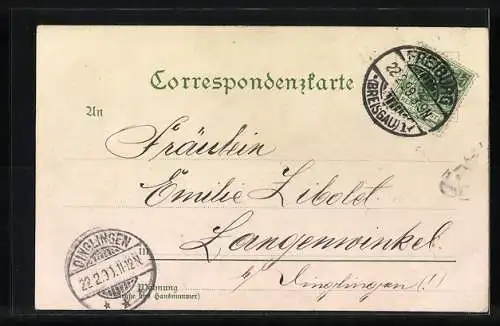 Correspondenzkarte
FREIBURG
22.2.
(BREISGAU)
An
Fräulein
Emilie Zibold
Langenwinkel
b/ Dinglingen (!)
DINGLINGEN
22.2.00.11-12V.
in
Wohnung
(Straße und Hausnummer)